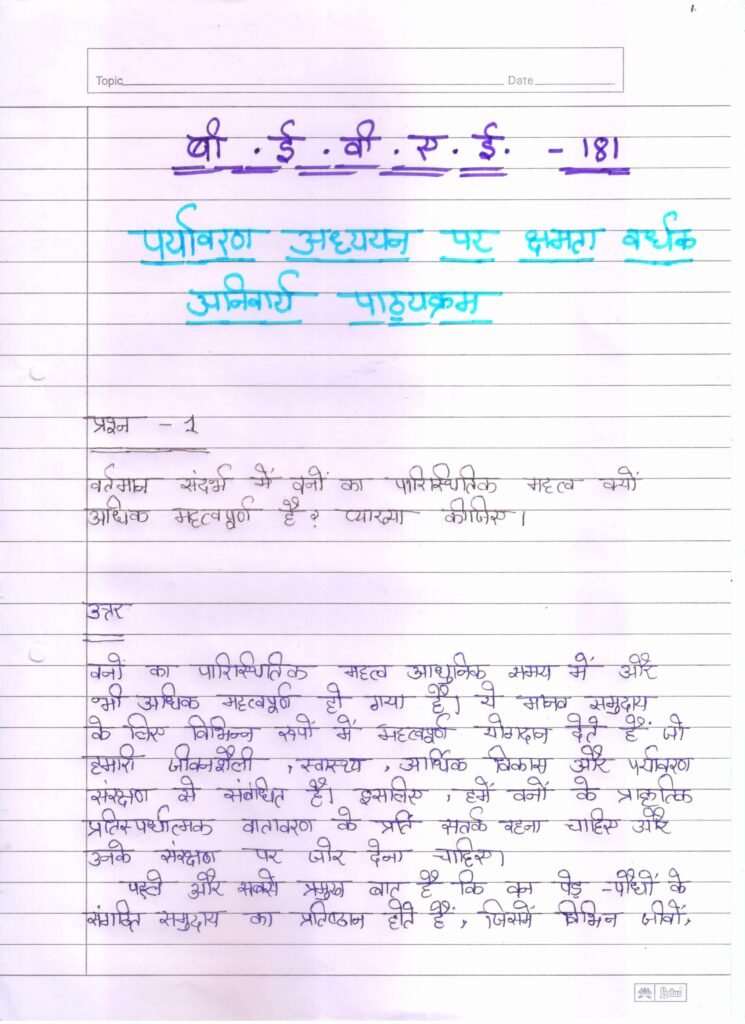 1.
Topic Date
बी . ई . वी . एस . ई . - 181
पर्यावरण अध्ययन पर क्षमता वर्धक
अनिवार्य पाठ्यक्रम
प्रश्न - 1
वर्तमान संदर्भ में वनों का पारिस्थितिक महत्व क्यों
अधिक महत्वपूर्ण है ? व्याख्या कीजिए ।
उत्तर
वनों का पारिस्थितिक महत्व आधुनिक समय में और
भी अधिक महत्वपूर्ण हो गया है। ये मानव समुदाय
के लिए विभिन्न रूपों में महत्वपूर्ण योगदान देते हैं जो
हमारी जीवनशैली , स्वास्थ्य , आर्थिक विकास और पर्यावरण
संरक्षण से संबंधित है। इसलिए , हमें वनों के प्राकृतिक
प्रतिस्पर्धात्मक वातावरण के प्रति सतर्क रहना चाहिए और
उनके संरक्षण पर जोर देना चाहिए।
पहले और सबसे प्रमुख बात है कि वन पेड़ -पौधों के
संगठित समुदाय का प्रतिष्ठान होते हैं , जिसमें विभिन जीवों,